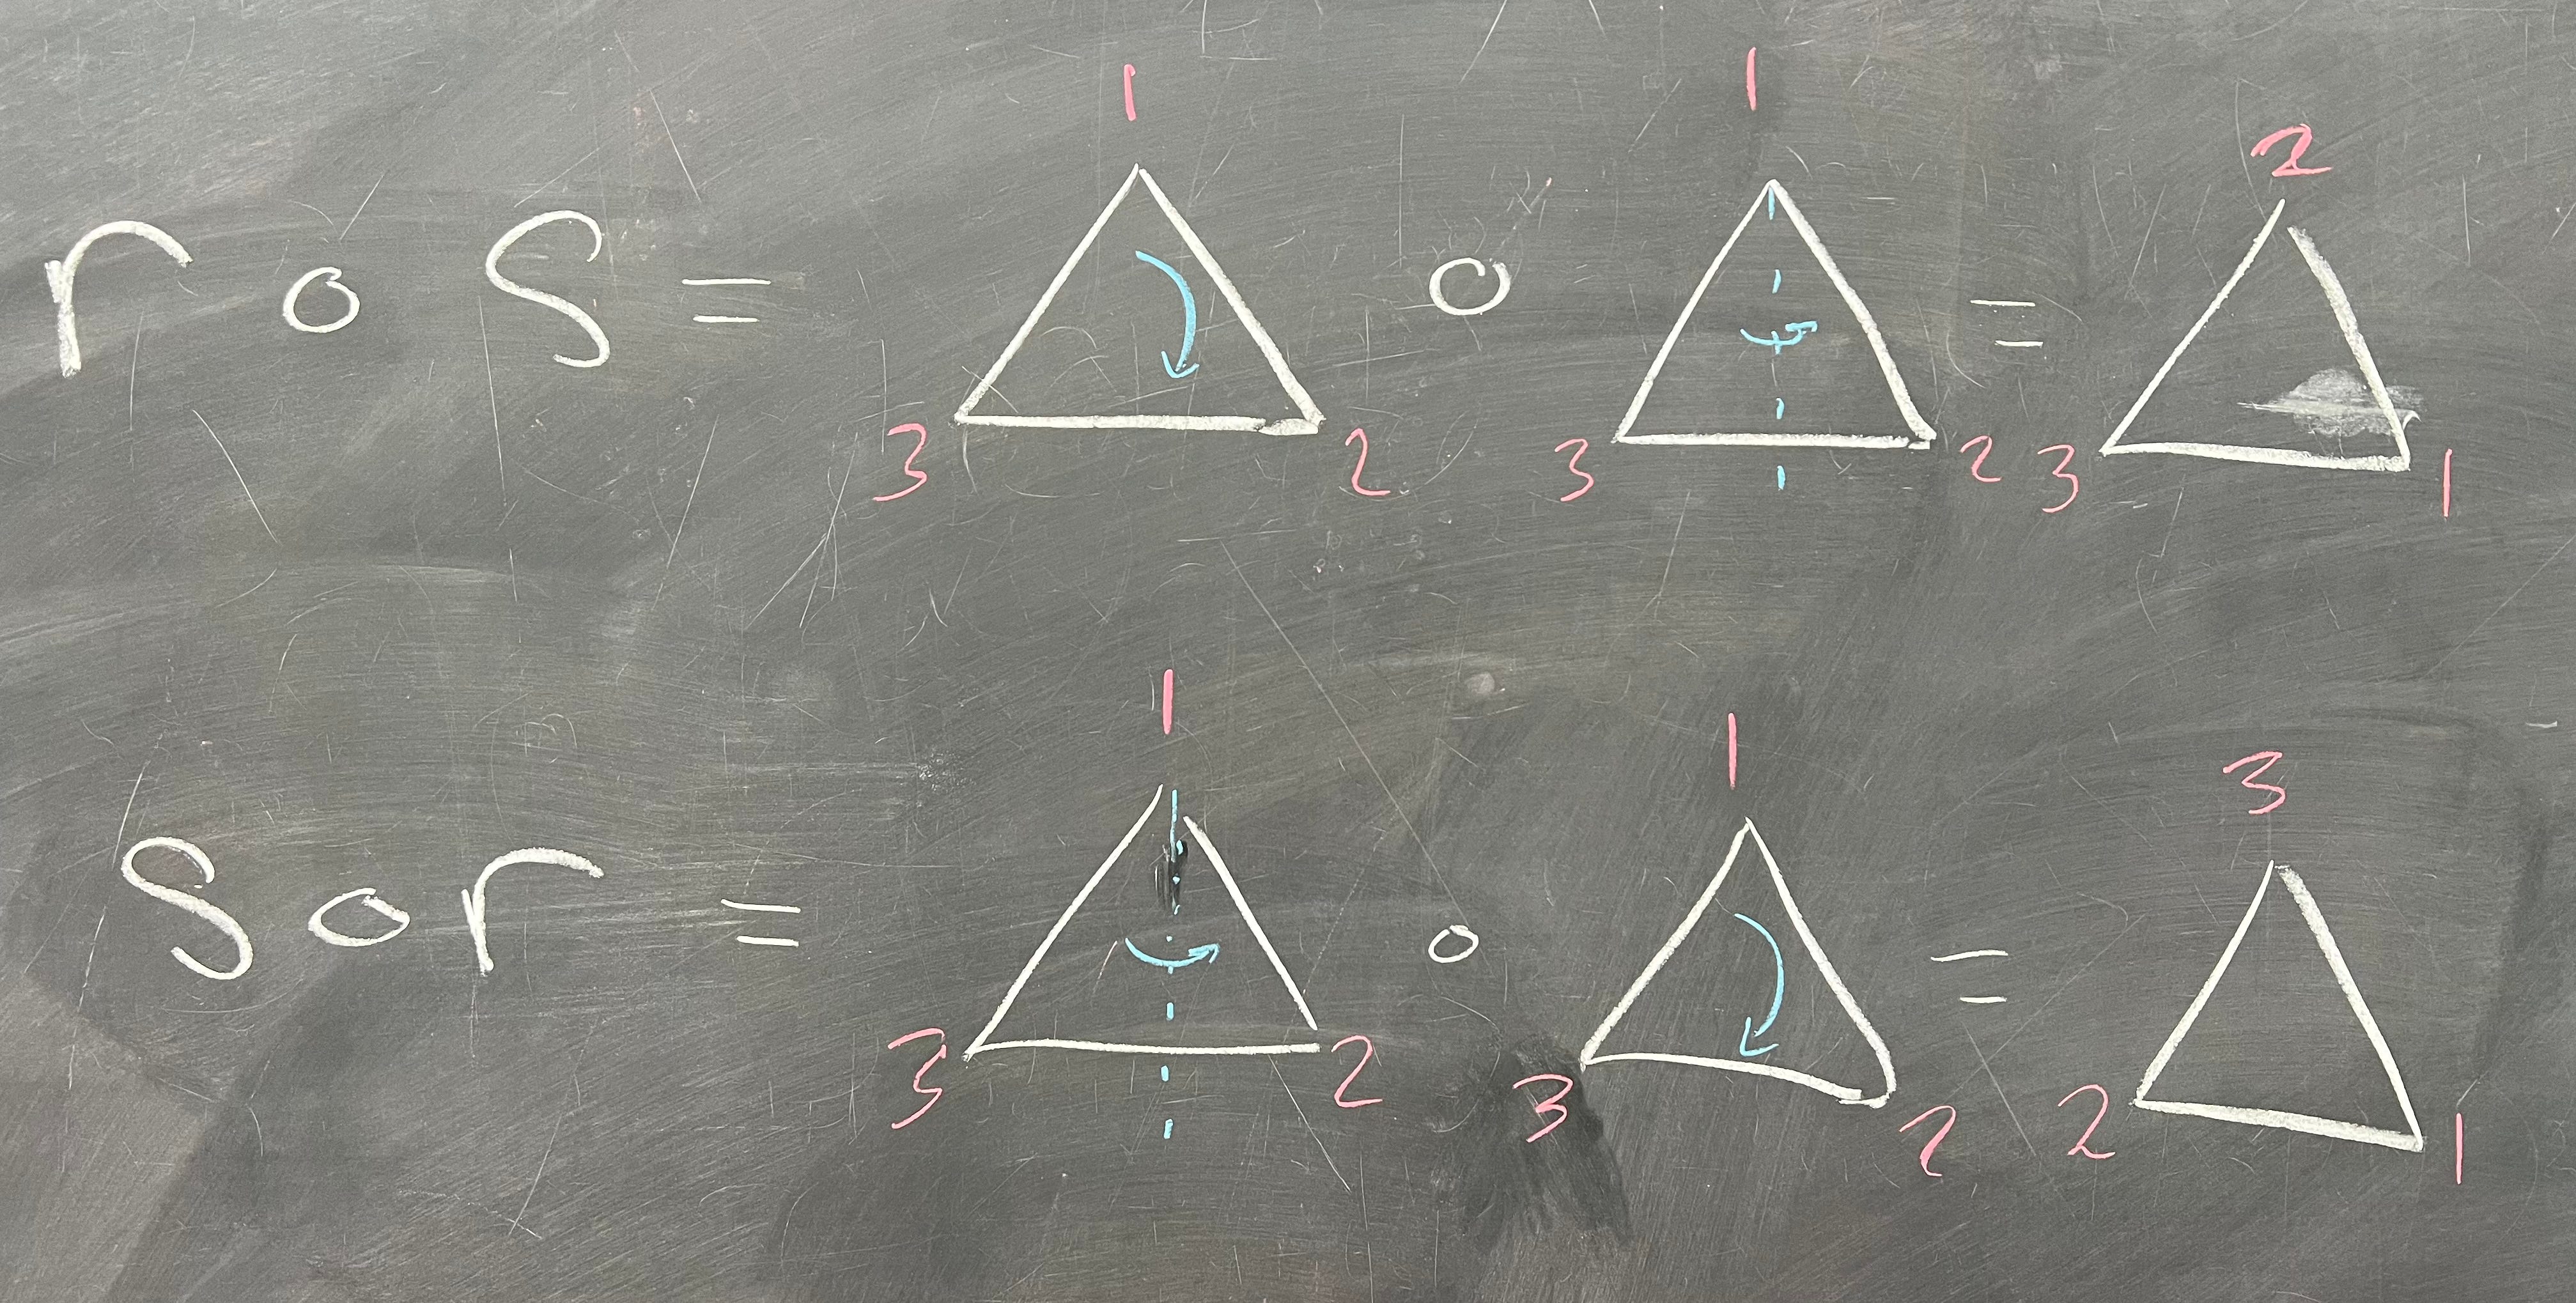 1 1 2
r ∘ s = ∘ =
3 2 3 2 3 1
1 1 3
s ∘ r = ∘ =
3 2 3 2 2 1